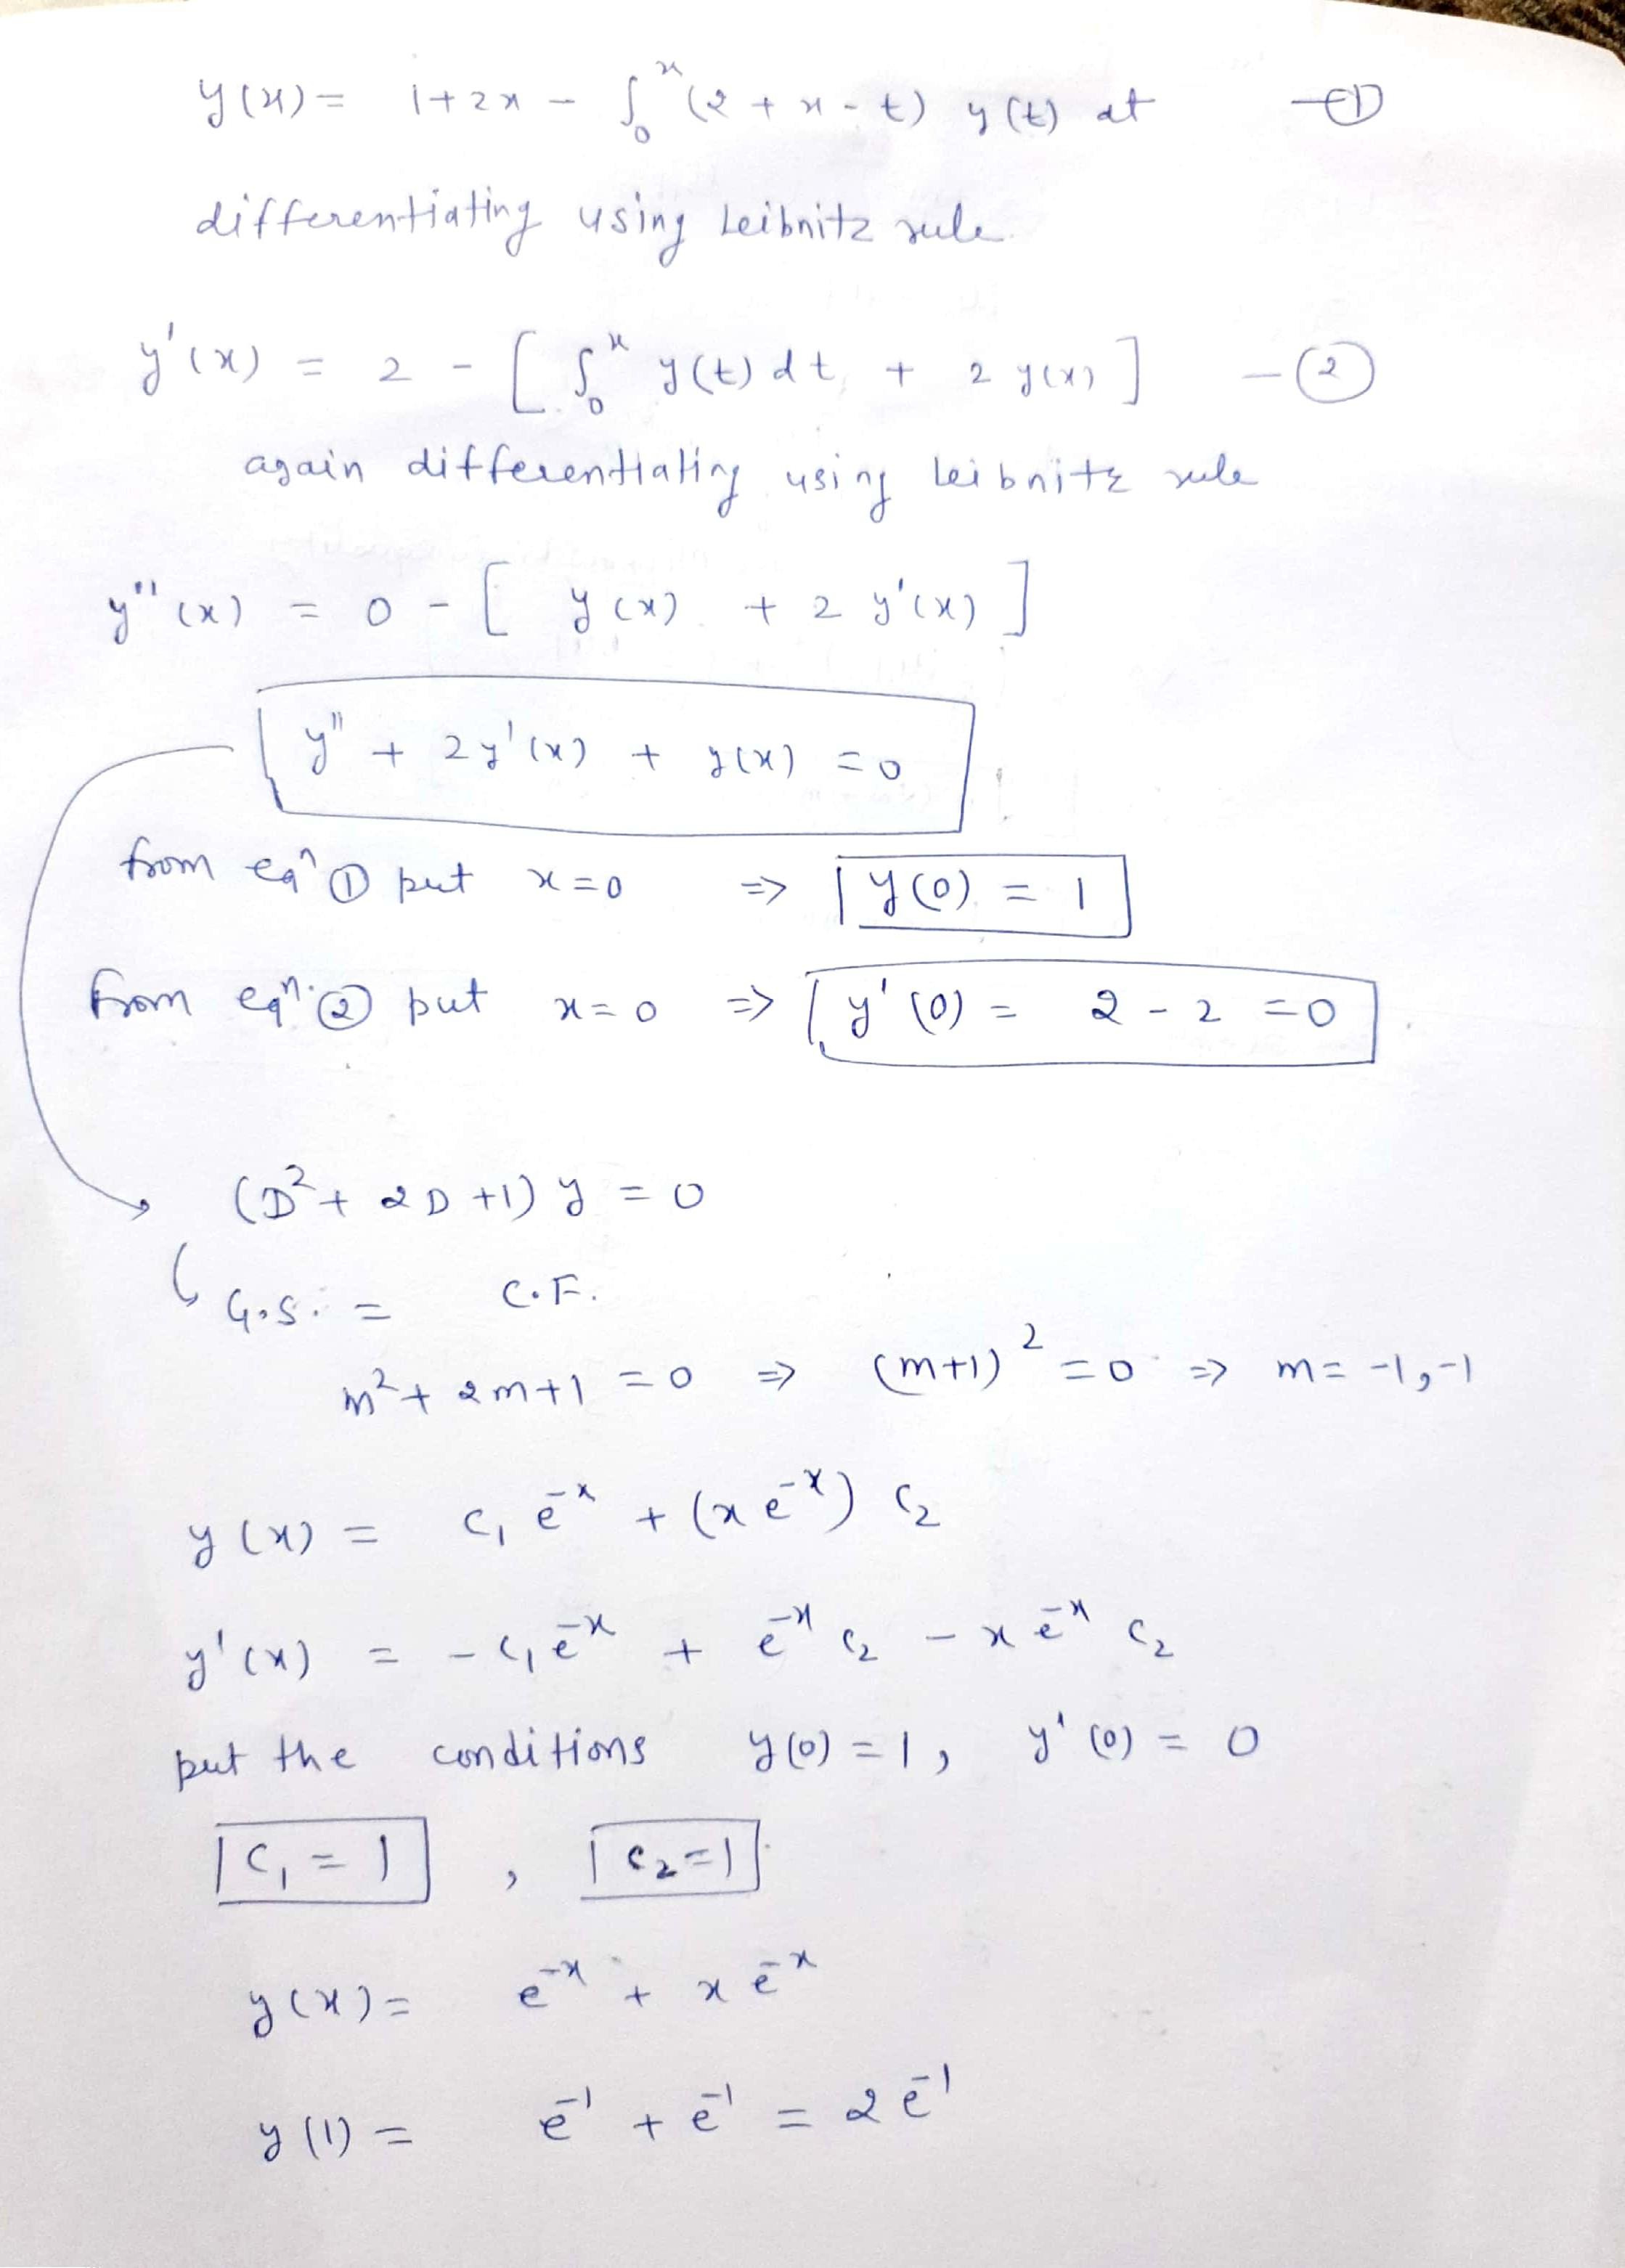 y(x) = 1+2x - ∫₀ˣ (2 + x - t) y(t) dt —①
differentiating using Leibnitz rule.
y'(x) = 2 - [ ∫₀ˣ y(t) dt + 2 y(x) ] —②
again differentiating using Leibnitz rule
y''(x) = 0 - [ y(x) + 2 y'(x) ]
y'' + 2y'(x) + y(x) = 0
from eqⁿ ① put x=0 ⇒ y(0) = 1
from eqⁿ. ② put x=0 ⇒ y'(0) = 2 - 2 = 0
(D² + 2D +1) y = 0
G.S. = C.F.
m² + 2m+1 = 0 ⇒ (m+1)² = 0 ⇒ m = -1, -1
y(x) = c₁ e⁻ˣ + (x e⁻ˣ) c₂
y'(x) = - c₁ e⁻ˣ + e⁻ˣ c₂ - x e⁻ˣ c₂
put the conditions y(0) = 1, y'(0) = 0
c₁ = 1 , c₂ = 1
y(x) = e⁻ˣ + x e⁻ˣ
y(1) = e⁻¹ + e⁻¹ = 2 e⁻¹